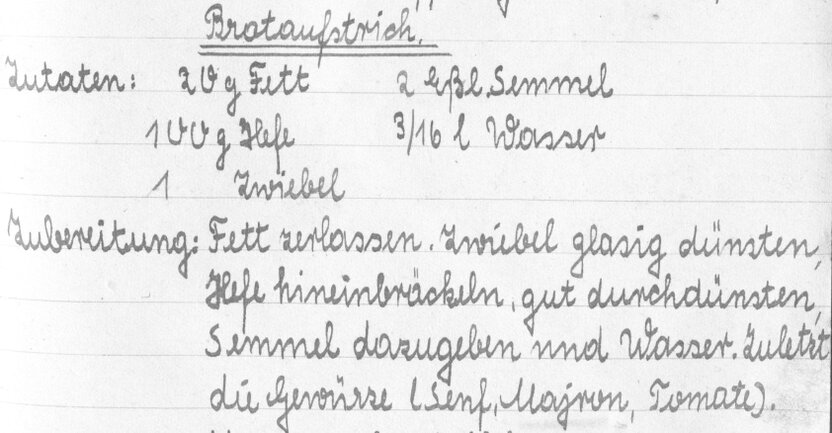 Brotaufstrich.
Zutaten: 20 g Fett 2 Eßl. Semmel
100 g Hefe 3/16 l Wasser
1 Zwiebel
Zubereitung: Fett zerlassen. Zwiebel glasig dünsten,
Hefe hineinbröckeln, gut durchdünsten,
Semmel dazugeben und Wasser. Zuletzt
die Gewürze (Senf, Majron, Tomate).